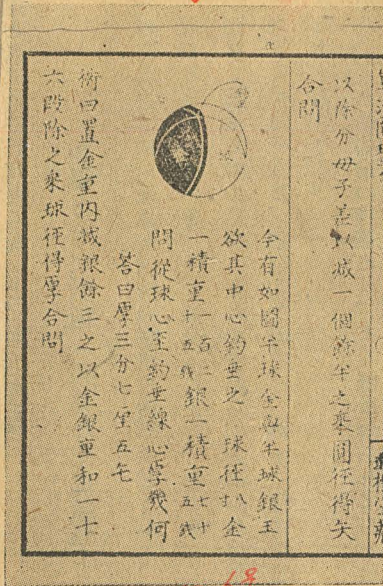 以除分母子差以減一個餘半之乗圓径得矢
合問
今有如圖半球金與半球銀玉
欲其中心釣垂之 球径八寸 金
一積重一百二十五戔銀一積重七十五戔
問從球心至釣垂線心厚幾何
答曰厚三分七厘五毛
術曰置金重内減銀餘三之以金銀重和一十
六段除之乗球径得厚合問